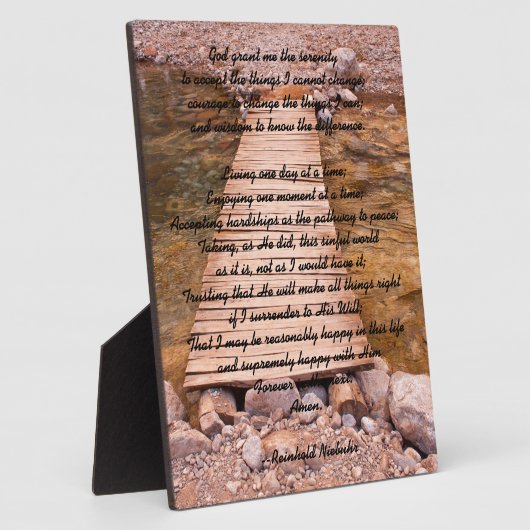 God grant me the serenity
to accept the things I cannot change;
courage to change the things I can;
and wisdom to know the difference.
Living one day at a time;
Enjoying one moment at a time;
Accepting hardships as the pathway to peace;
Taking, as He did, this sinful world
as it is, not as I would have it;
Trusting that He will make all things right
if I surrender to His Will;
That I may be reasonably happy in this life
and supremely happy with Him
Forever next.
Amen.
--Reinhold Niebuhr